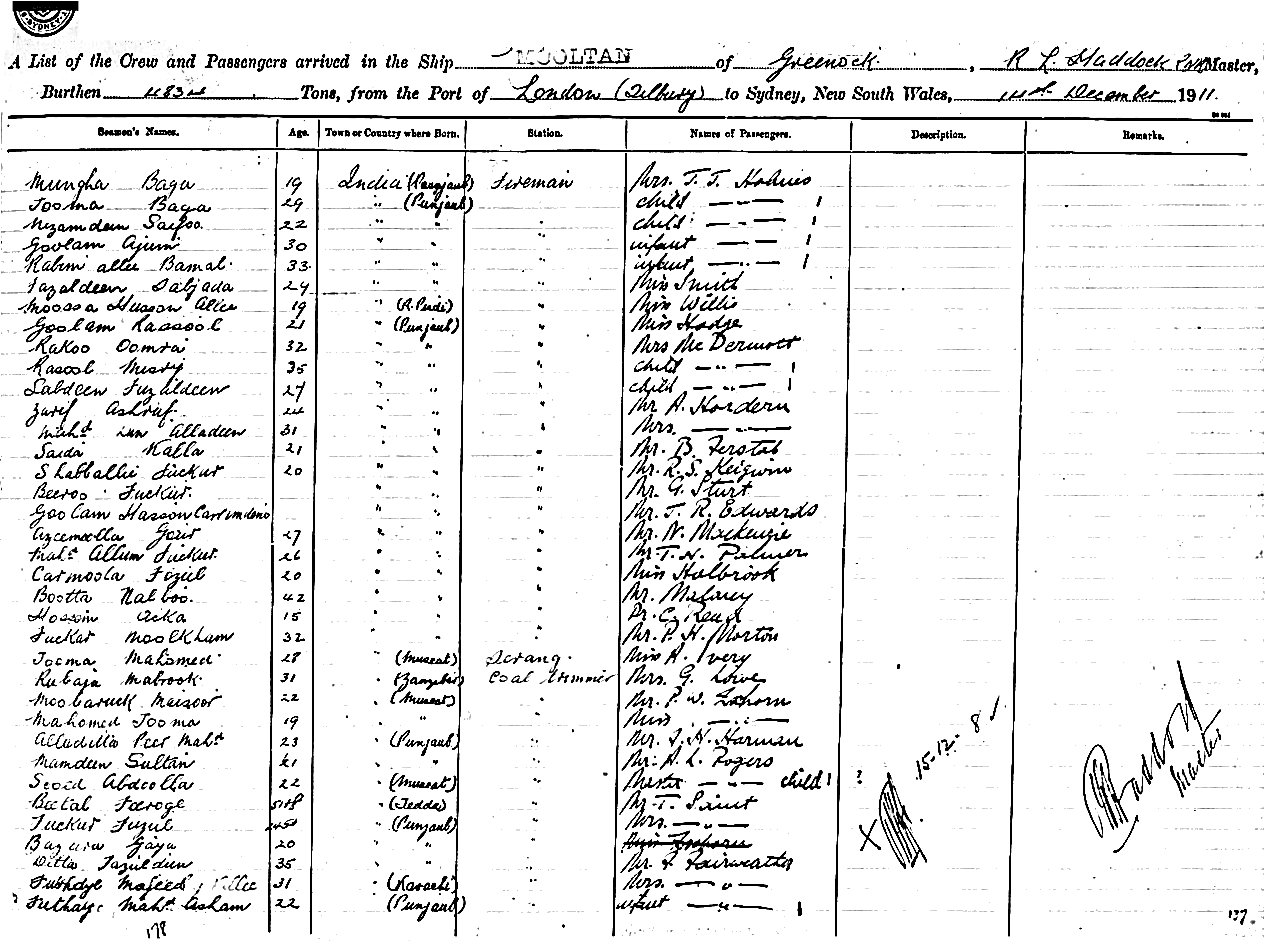 SYDNEY
A List of the Crew and Passengers arrived in the Ship MOOLTAN of Greenock, R L Haddock Master,
Burthen 4834 Tons, from the Port of London (Tilbury) to Sydney, New South Wales, 14th December 1911.
Seamen's Names. Age. Town or Country where Born. Station. Names of Passengers. Description. Remarks.
Mungha Baga 19 India (Punjaub) Fireman Mrs. T. T. Hodges
Jooma Baga 29 " (Punjaub) child — " — 1
Nizamdeen 22 " " " child — " — 1
Goolam Ajumi 30 " " " infant — " — 1
Rabim allee Bamal 33 " " " infant — " — 1
Fazaldeen 24 " " " Miss Smith
Moossa Husson Allie 19 " (R. Pindi) " Miss Willis
Goolam Rassool 21 " (Punjaub) " Miss Hodge
Rakoo Oomra 32 " " " Mrs McDermott
Rasool Misry 35 " " " child — " — 1
Labdeen Fuzaldeen 27 " " " child — " — 1
Zarif Ashruf 24 " " " Mr A. Hordern
Mahd. Alladeen 31 " " " Mrs. — " —
Saida Kalla 21 " " " Mr. B.
Shabballie Fuckur 20 " " " Mr. R. S. Keigwin
Beeroo Fuckur " " " Mr. G. Sturt
Goolam Hasson " " " Mr. J. R. Edwards
Azeemoolla 27 " " " Mr. N. Mackenzie
Mahd. Allum Fuckur 26 " " " Mr T. H. Palmer
Carmoola Fuzul 20 " " " Miss Holbrook
Bootta 42 " " " Mr. Mulaney
Hossein Acka 15 " " " Dr. C. Read
Fuckur Moolkham 32 " " " Mr. P. H. Morton
Jooma Mahomed 28 " (Muscat) Serang. Miss A. Ivery
Rubaja Mabrook 31 " (Zanzebar) Coal trimmer Mrs. G. Lowe
Moobaruck 22 " (Muscat) " Mr. P. W.
Mahomed Jooma 19 " " " Miss — " —
Alladitta Peer Mahd. 23 " (Punjaub) " Mr. J. H. Harman
Mamdeen Sultan 21 " " " Mr. A. L. Rogers
Seoed Abdoolla 22 " (Muscat) " Master — " — child 1 ?
Faroge " (Jedda) " Mr. T. Saint
Fuckur Fuzul " (Punjaub) " Mrs. — " —
Gaya 20 " " " Miss
Ditta Fazuldun 35 " " " Mr. Fairweather
Majeed 31 " (Karachi) " Mrs. — " —
Mahd. Asham 22 " (Punjaub) " infant — " — 1
X 15.12. 8
Haddock
Master
178
137.